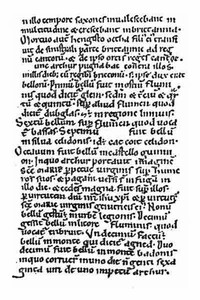 In illo tempore saxones inualescebant in
multitudine & crescebant in brittannia.
Mortuo aut hengisto octha fili' ei' transi
uit de sinistrali parte brittannie ad reg
nu cantoru. & de ipso orti reges cantor.
Tunc arthur pugnabat contra illos
in illis dieb; cu regib; brittonu. s; ipse dux erat
bellorū. Primū bellū fuit in ostiū flumi
nis quod dicit glein. secdm & tciu & qr
tu & quintu. sup aliud flumen quod
dicit dubglas. & in regione linnuis.
Sextū bellum sup flumen quod uocat
bassas. Septimū fuit bellū
in silua celidonis. id cat coit celidon.
Octauum fuit bellū in castello guinni
on. In quo arthur portauit imagine
scē mariē perpetue uirginis sup humos
suos. & pagani uersi st in fuga in
illo die. & cedes magna fuit sup illos.
p uirtutem dnī nrī ihu xp & p uirtut
scē mariē uirginis genitricis ei'. Nonū
bellū gestū in urbe legionis. Decimū
gessit bellū in litore fluminis quod
uocat tribruit. Undecimū factū
bellū in monte qui dicit agned. Duo
decimū fuit bellū in monte badonis
inquo corruer in uno die nongenti sexa
ginta uiri de uno impetu arthur.